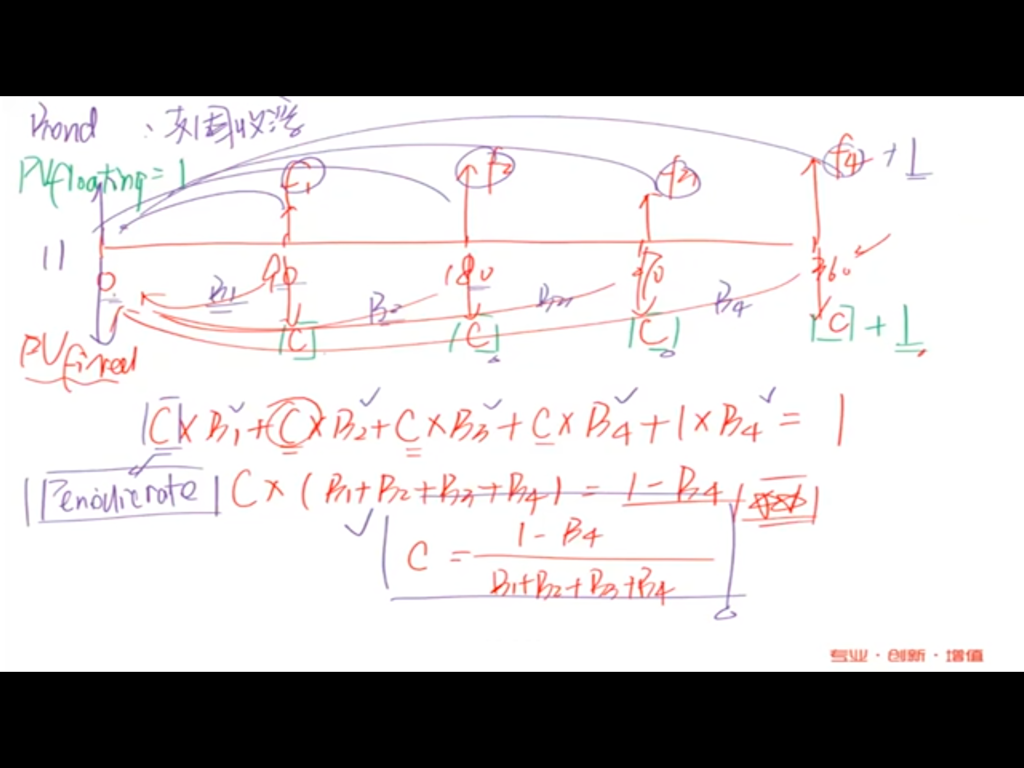 Bond 、支固收浮
PVfloating = 1 f1 f2 f3 f4 + 1
11
0 90 180 270 360
B1 B2 B3 B4
[C] [C] [C] [C] + 1
PVfixed
C × B1 + C × B2 + C × B3 + C × B4 + 1 × B4 = 1
Periodic rate C × ( B1 + B2 + B3 + B4 ) = 1 - B4
C = 1 - B4
B1 + B2 + B3 + B4
专业 · 创新 · 增值